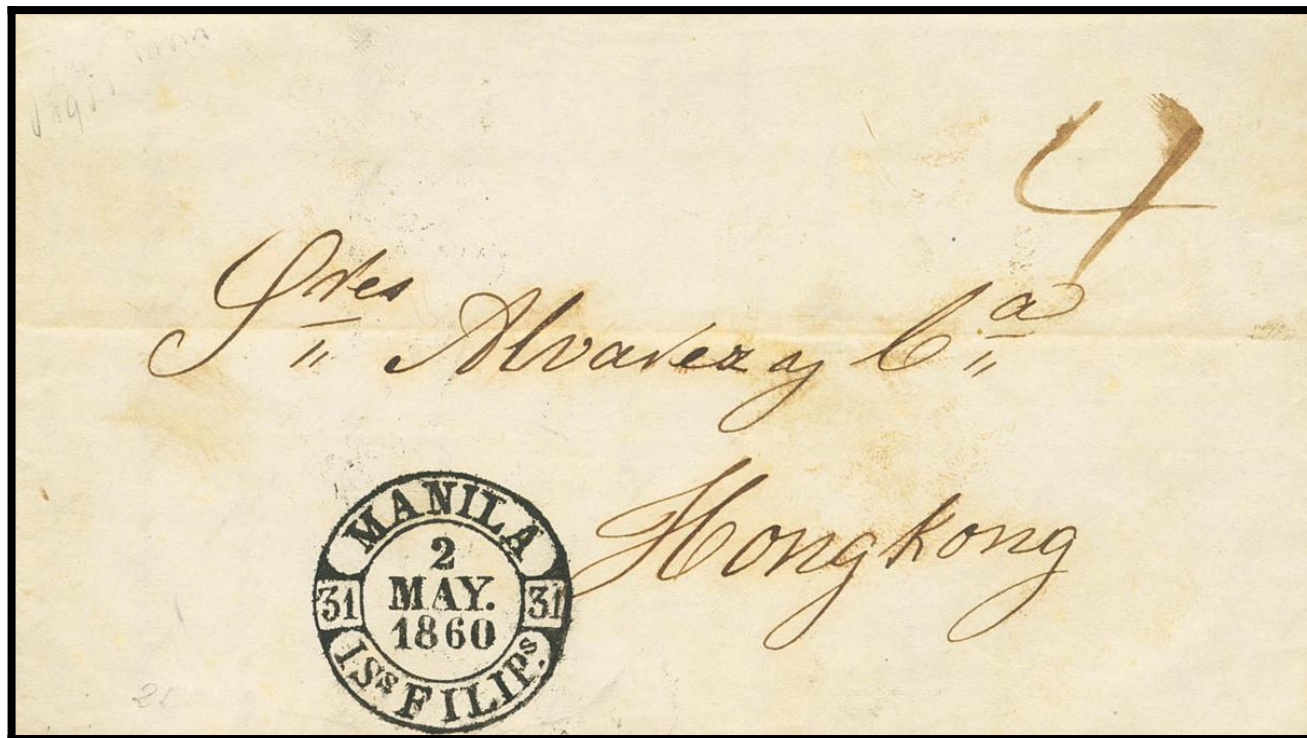 4
Sres Alvarez y Ca
Hongkong
MANILA
2
MAY.
1860
31 31
ISs FILIPs.